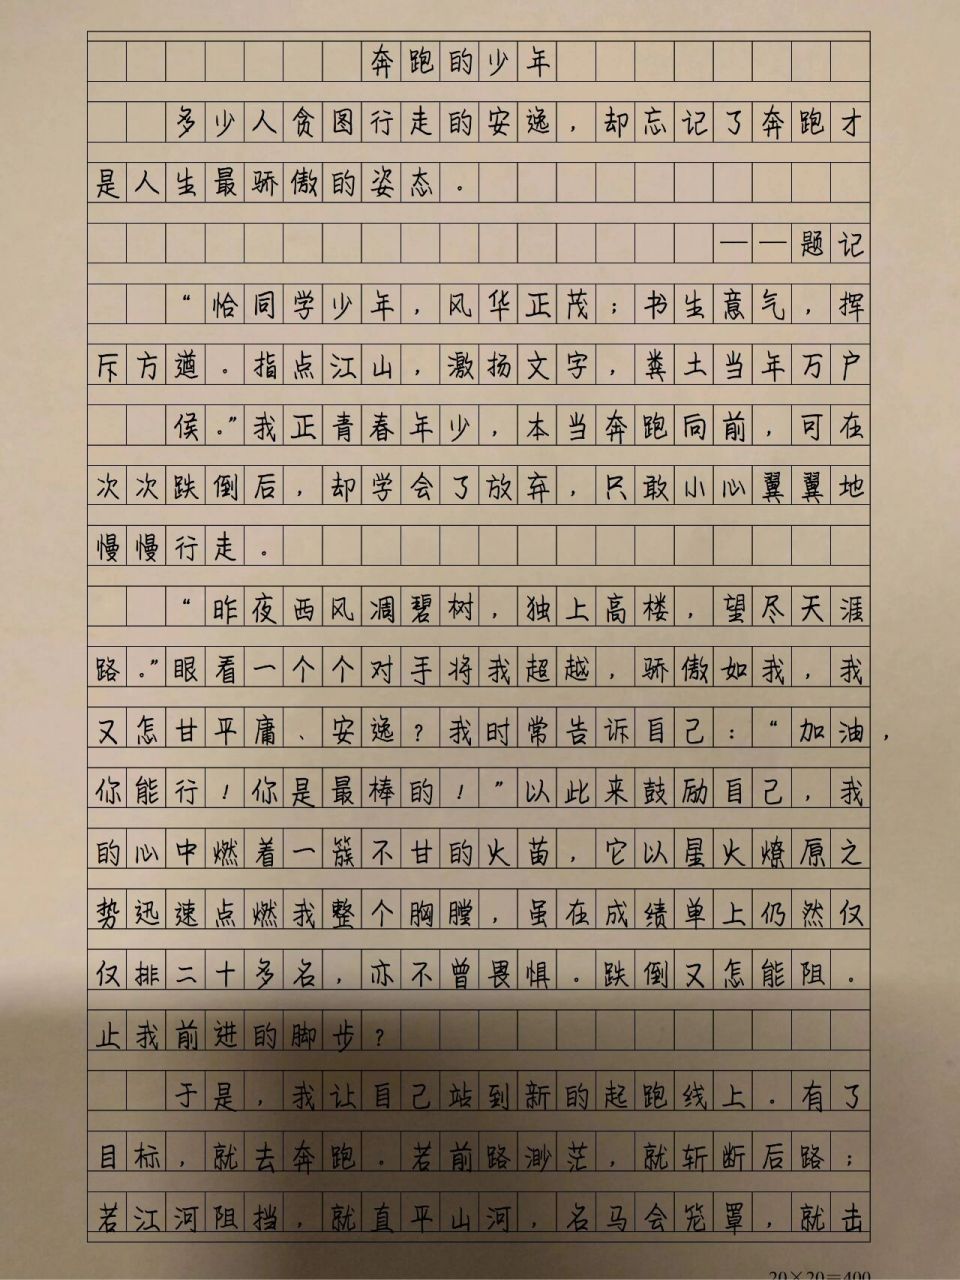 奔跑的少年
多少人贪图行走的安逸，却忘记了奔跑才
是人生最骄傲的姿态。
——题记
“恰同学少年，风华正茂；书生意气，挥
斥方遒。指点江山，激扬文字，粪土当年万户
侯。”我正青春年少，本当奔跑向前，可在
次次跌倒后，却学会了放弃，只敢小心翼翼地
慢慢行走。
“昨夜西风凋碧树，独上高楼，望尽天涯
路。”眼看一个个对手将我超越，骄傲如我，我
又怎甘平庸、安逸？我时常告诉自己：“加油，
你能行！你是最棒的！”以此来鼓励自己，我
的心中燃着一簇不甘的火苗，它以星火燎原之
势迅速点燃我整个胸膛，虽在成绩单上仍然仅
仅排二十多名，亦不曾畏惧。跌倒又怎能阻。
止我前进的脚步？
于是，我让自己站到新的起跑线上。有了
目标，就去奔跑。若前路渺茫，就斩断后路；
若江河阻挡，就直平山河，名马会笼罩，就击
20×20=400